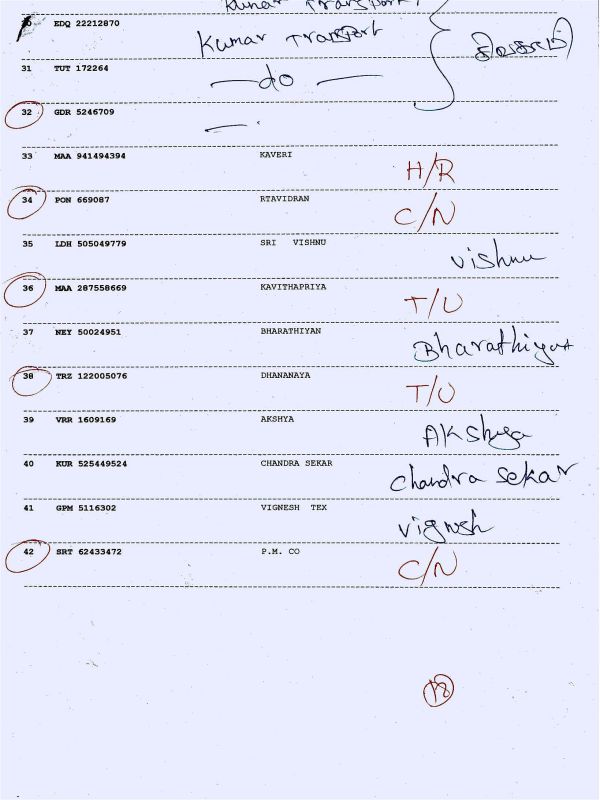 Kumar Transport
30 EDQ 22212870
Kumar Transport
31 TUT 172264
do
32 GDR 5246709
33 MAA 941494394 KAVERI H/R
34 PON 669087 RTAVIDRAN C/N
35 LDH 505049779 SRI VISHNU Vishnu
36 MAA 287558669 KAVITHAPRIYA T/U
37 NEY 50024951 BHARATHIYAN Bharathiyan
38 TRZ 122005076 DHANANAYA T/U
39 VRR 1609169 AKSHYA Akshya
40 KUR 525449524 CHANDRA SEKAR Chandra Sekar
41 GPM 5116302 VIGNESH TEX Vignesh
42 SRT 62433472 P.M. CO C/N
18